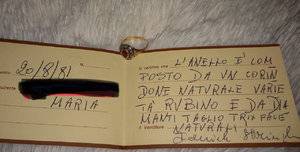 20/8/81
MARIA
L'ANELLO E' COM
POSTO DA UN CORIN
DONE NATURALE VARIE
TÀ RUBINO E DA DIA
MANTI TAGLIO TRIFACE
NATURALI
il venditore